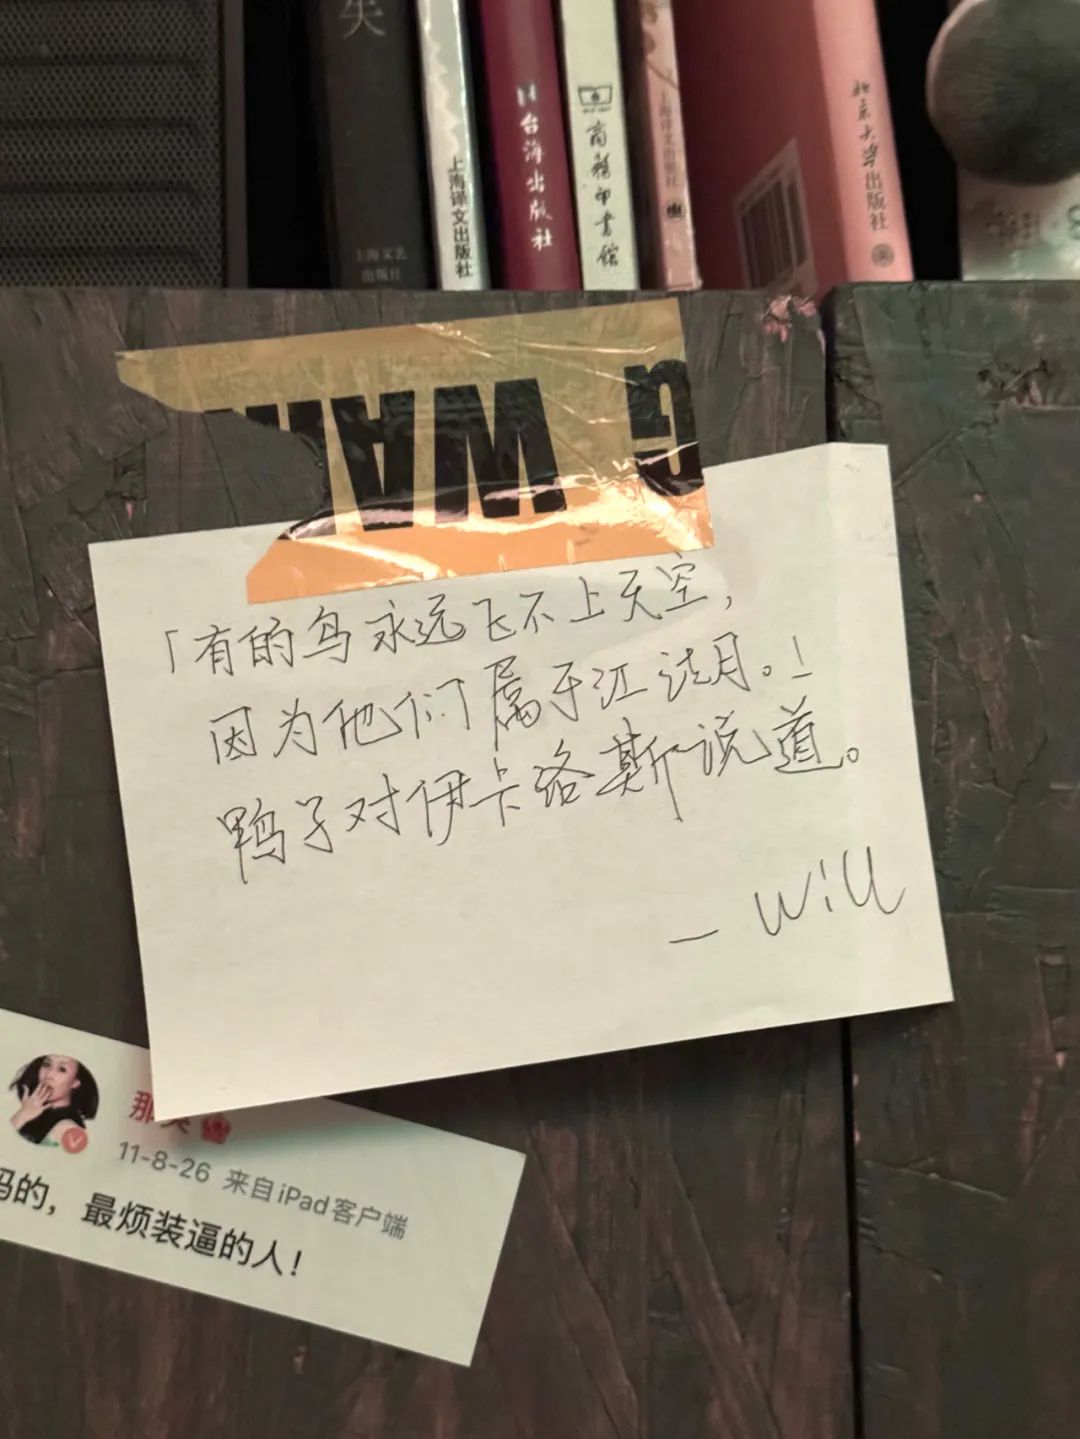 失
上海文艺
出版社
上海译文出版社
台海出版社
商务印书馆
上海译文出版社
北京大学出版社
G WA
「有的鸟永远飞不上天空,
因为他们属于江 月。」
鸭子对伊卡洛斯说道。
— Will
那
11-8-26 来自iPad客户端
妈的，最烦装逼的人！